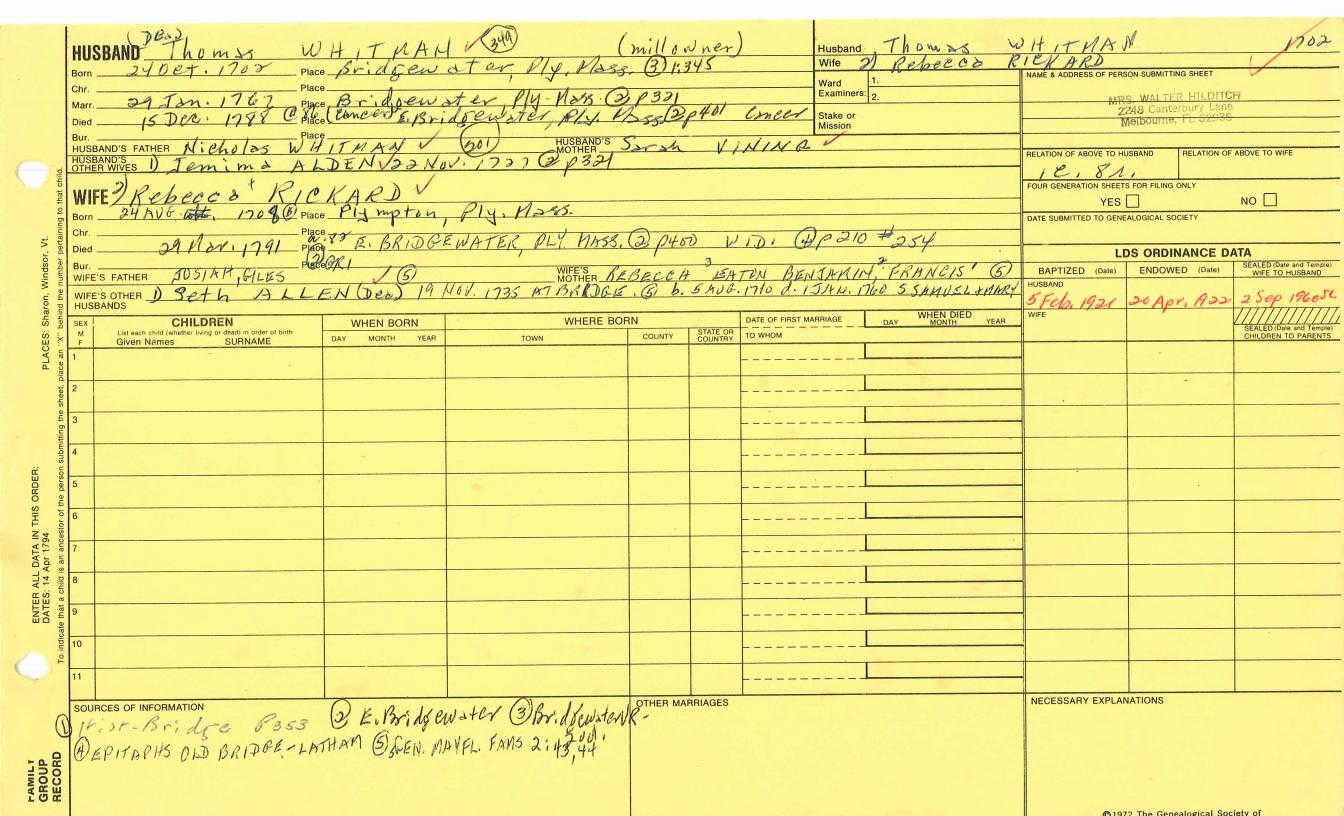 (Dea)
HUSBAND Thomas WHITMAN 349 (mill owner)
Born 24 Oct. 1702 Place Bridgewater, Ply. Mass. ③ 1:345
Chr. Place
Marr. 29 Jan. 1767 Place Bridgewater, Ply-Mass. ② p321
Died 15 Dec. 1788 @ 86 (cancer) Place E. Bridgewater, Ply. Mass ② p401 Cancer
Bur. Place
HUSBAND'S FATHER Nicholas WHITMAN 201 HUSBAND'S MOTHER Sarah VINING
HUSBAND'S OTHER WIVES 1) Jemima ALDEN 22 Nov. 1727 ② p321
WIFE 2) Rebecca RICKARD
Born 24 AUG 1708 Place Plympton, Ply. Mass.
Chr. Place
Died 29 Mar. 1791 a. 82 Place E. BRIDGEWATER, PLY. MASS. ② p400 WID. ④ p210 #254
Bur. Place ② GR1
WIFE'S FATHER JOSIAH, GILES ⑤ WIFE'S MOTHER REBECCA³ EATON BENJAMIN,² FRANCIS¹ ⑤
WIFE'S OTHER HUSBANDS 1) Seth ALLEN (Dea) 19 NOV. 1735 AT BRIDGE. ⑤ b. 5 AUG. 1710 d. 1 JAN. 1760 S SAMUEL & MARY
Husband Thomas WHITMAN 1702
Wife 2) Rebecca RICKARD
Ward Examiners: 1.
2.
Stake or Mission
NAME & ADDRESS OF PERSON SUBMITTING SHEET
MRS. WALTER HILDITCH
2248 Canterbury Lane
Melbourne, FL 32935
RELATION OF ABOVE TO HUSBAND RELATION OF ABOVE TO WIFE
FOUR GENERATION SHEETS FOR FILING ONLY
YES NO
DATE SUBMITTED TO GENEALOGICAL SOCIETY
LDS ORDINANCE DATA
BAPTIZED (Date) ENDOWED (Date) SEALED (Date and Temple) WIFE TO HUSBAND
HUSBAND
5 Feb. 1921 20 Apr. 1922 2 Sep 1960 SL
WIFE
SEALED (Date and Temple) CHILDREN TO PARENTS
SEX M F
CHILDREN
List each child (whether living or dead) in order of birth
Given Names SURNAME
WHEN BORN
DAY MONTH YEAR
WHERE BORN
TOWN COUNTY STATE OR COUNTRY
DATE OF FIRST MARRIAGE
TO WHOM
WHEN DIED
DAY MONTH YEAR
1
2
3
4
5
6
7
8
9
10
11
SOURCES OF INFORMATION
① Hist-Bridge P353 ② E. Bridgewater ③ Bridgewater VR-
④ EPITAPHS OLD BRIDGE-LATHAM ⑤ GEN. MAYFL. FAMS 2:43,44
OTHER MARRIAGES
NECESSARY EXPLANATIONS
©1972 The Genealogical Society of
PLACES: Sharon, Windsor, Vt.
ENTER ALL DATA IN THIS ORDER:
DATES: 14 Apr 1794
To indicate that a child is an ancestor of the person submitting the sheet, place an "X" behind the number pertaining to that child.
FAMILY GROUP RECORD